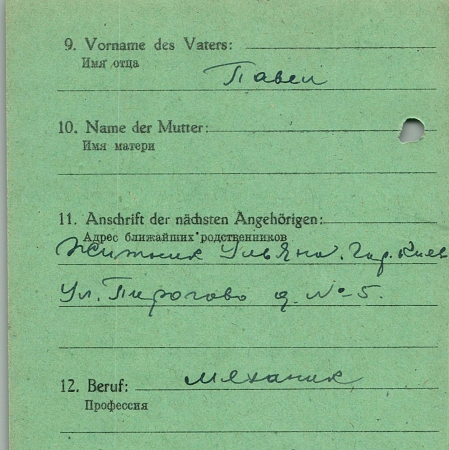 9. Vorname des Vaters:
Имя отца
Павел
10. Name der Mutter:
Имя матери
11. Anschrift der nächsten Angehörigen:
Адрес ближайших родственников
Житник Ульяна. Гор. Киев
Ул. Пирогово д. № 5.
12. Beruf:
механик
Профессия